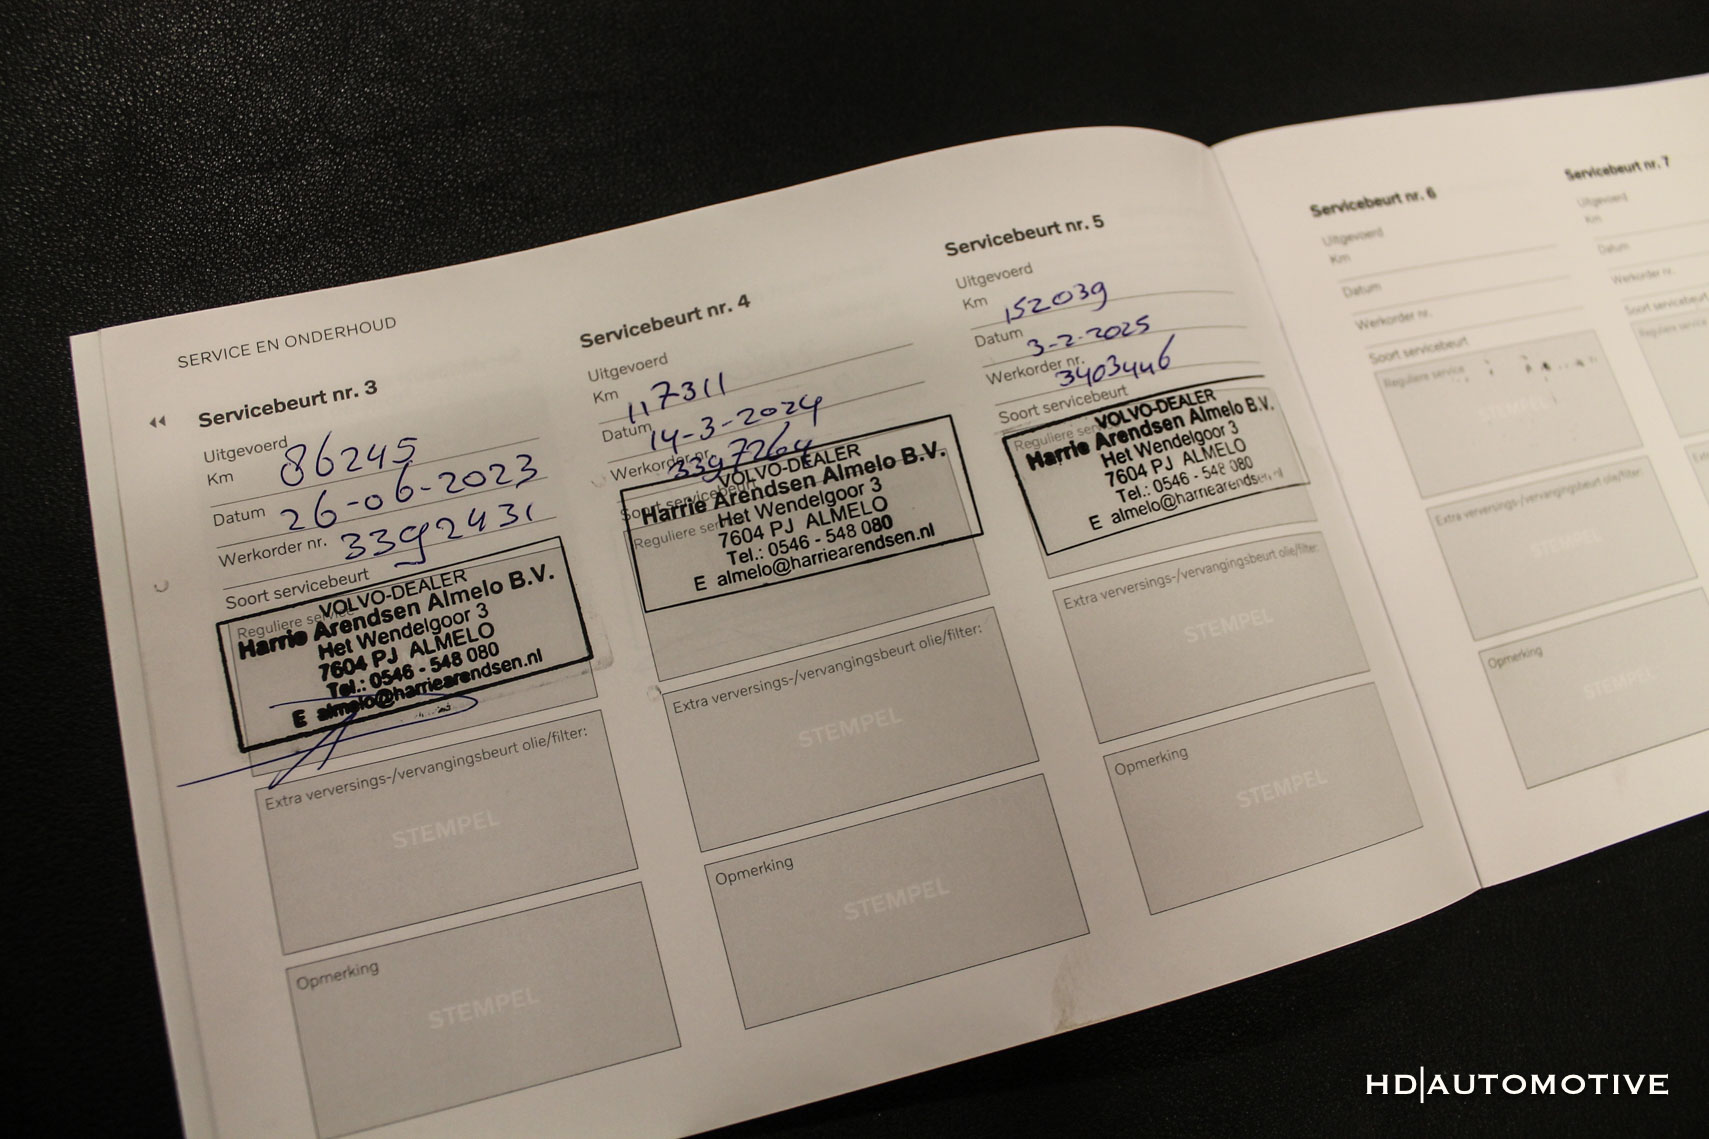 SERVICE EN ONDERHOUD
Servicebeurt nr. 3
Uitgevoerd
Km 86245
Datum 26-06-2023
Werkorder nr. 3392431
Soort servicebeurt
Reguliere service
VOLVO-DEALER
Harrie Arendsen Almelo B.V.
Het Wendelgoor 3
7604 PJ ALMELO
Tel.: 0546 - 548 080
E almelo@harriearendsen.nl
Extra verversings-/vervangingsbeurt olie/filter:
STEMPEL
Opmerking
STEMPEL
Servicebeurt nr. 4
Uitgevoerd
Km 117311
Datum 14-3-2024
Werkorder nr. 3397264
Soort servicebeurt
Reguliere ser
VOLVO-DEALER
Harrie Arendsen Almelo B.V.
Het Wendelgoor 3
7604 PJ ALMELO
Tel.: 0546 - 548 080
E almelo@harriearendsen.nl
Extra verversings-/vervangingsbeurt olie/filter:
STEMPEL
Opmerking
STEMPEL
Servicebeurt nr. 5
Uitgevoerd
Km 152039
Datum 3-2-2025
Werkorder nr. 3403446
Soort servicebeurt
Reguliere ser
VOLVO-DEALER
Harrie Arendsen Almelo B.V.
Het Wendelgoor 3
7604 PJ ALMELO
Tel.: 0546 - 548 080
E almelo@harriearendsen.nl
Extra verversings-/vervangingsbeurt olie/filter:
STEMPEL
Opmerking
STEMPEL
Servicebeurt nr. 6
Uitgevoerd
Km
Datum
Werkorder nr.
Soort servicebeurt
Reguliere service
STEMPEL
Extra verversings-/vervangingsbeurt olie/filter:
STEMPEL
Opmerking
STEMPEL
Servicebeurt nr. 7
Uitgevoerd
Km
Datum
Werkorder nr.
Soort servicebeurt
Reguliere service
HD|AUTOMOTIVE